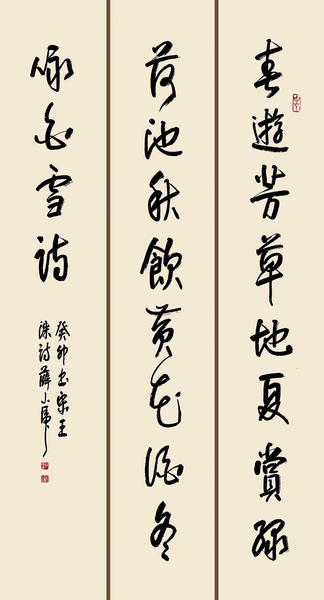 春遊芳草地夏賞綠
荷池秋飲黃花酒冬
咏白雪詩
癸卯書宋王
洙詩薛小